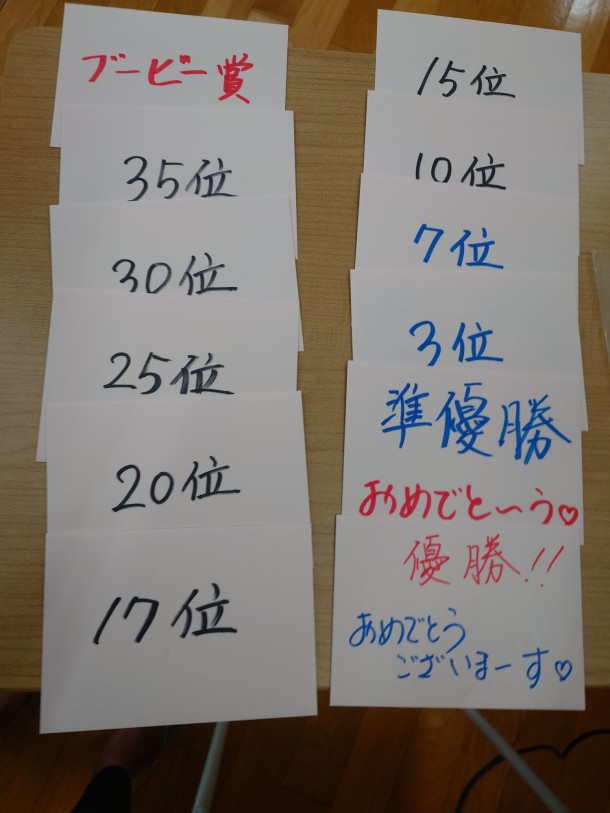 ブービー賞
35位
30位
25位
20位
17位
15位
10位
7位
3位
準優勝
おめでと〜う♡
優勝!!
おめでとう
ございまーす♡